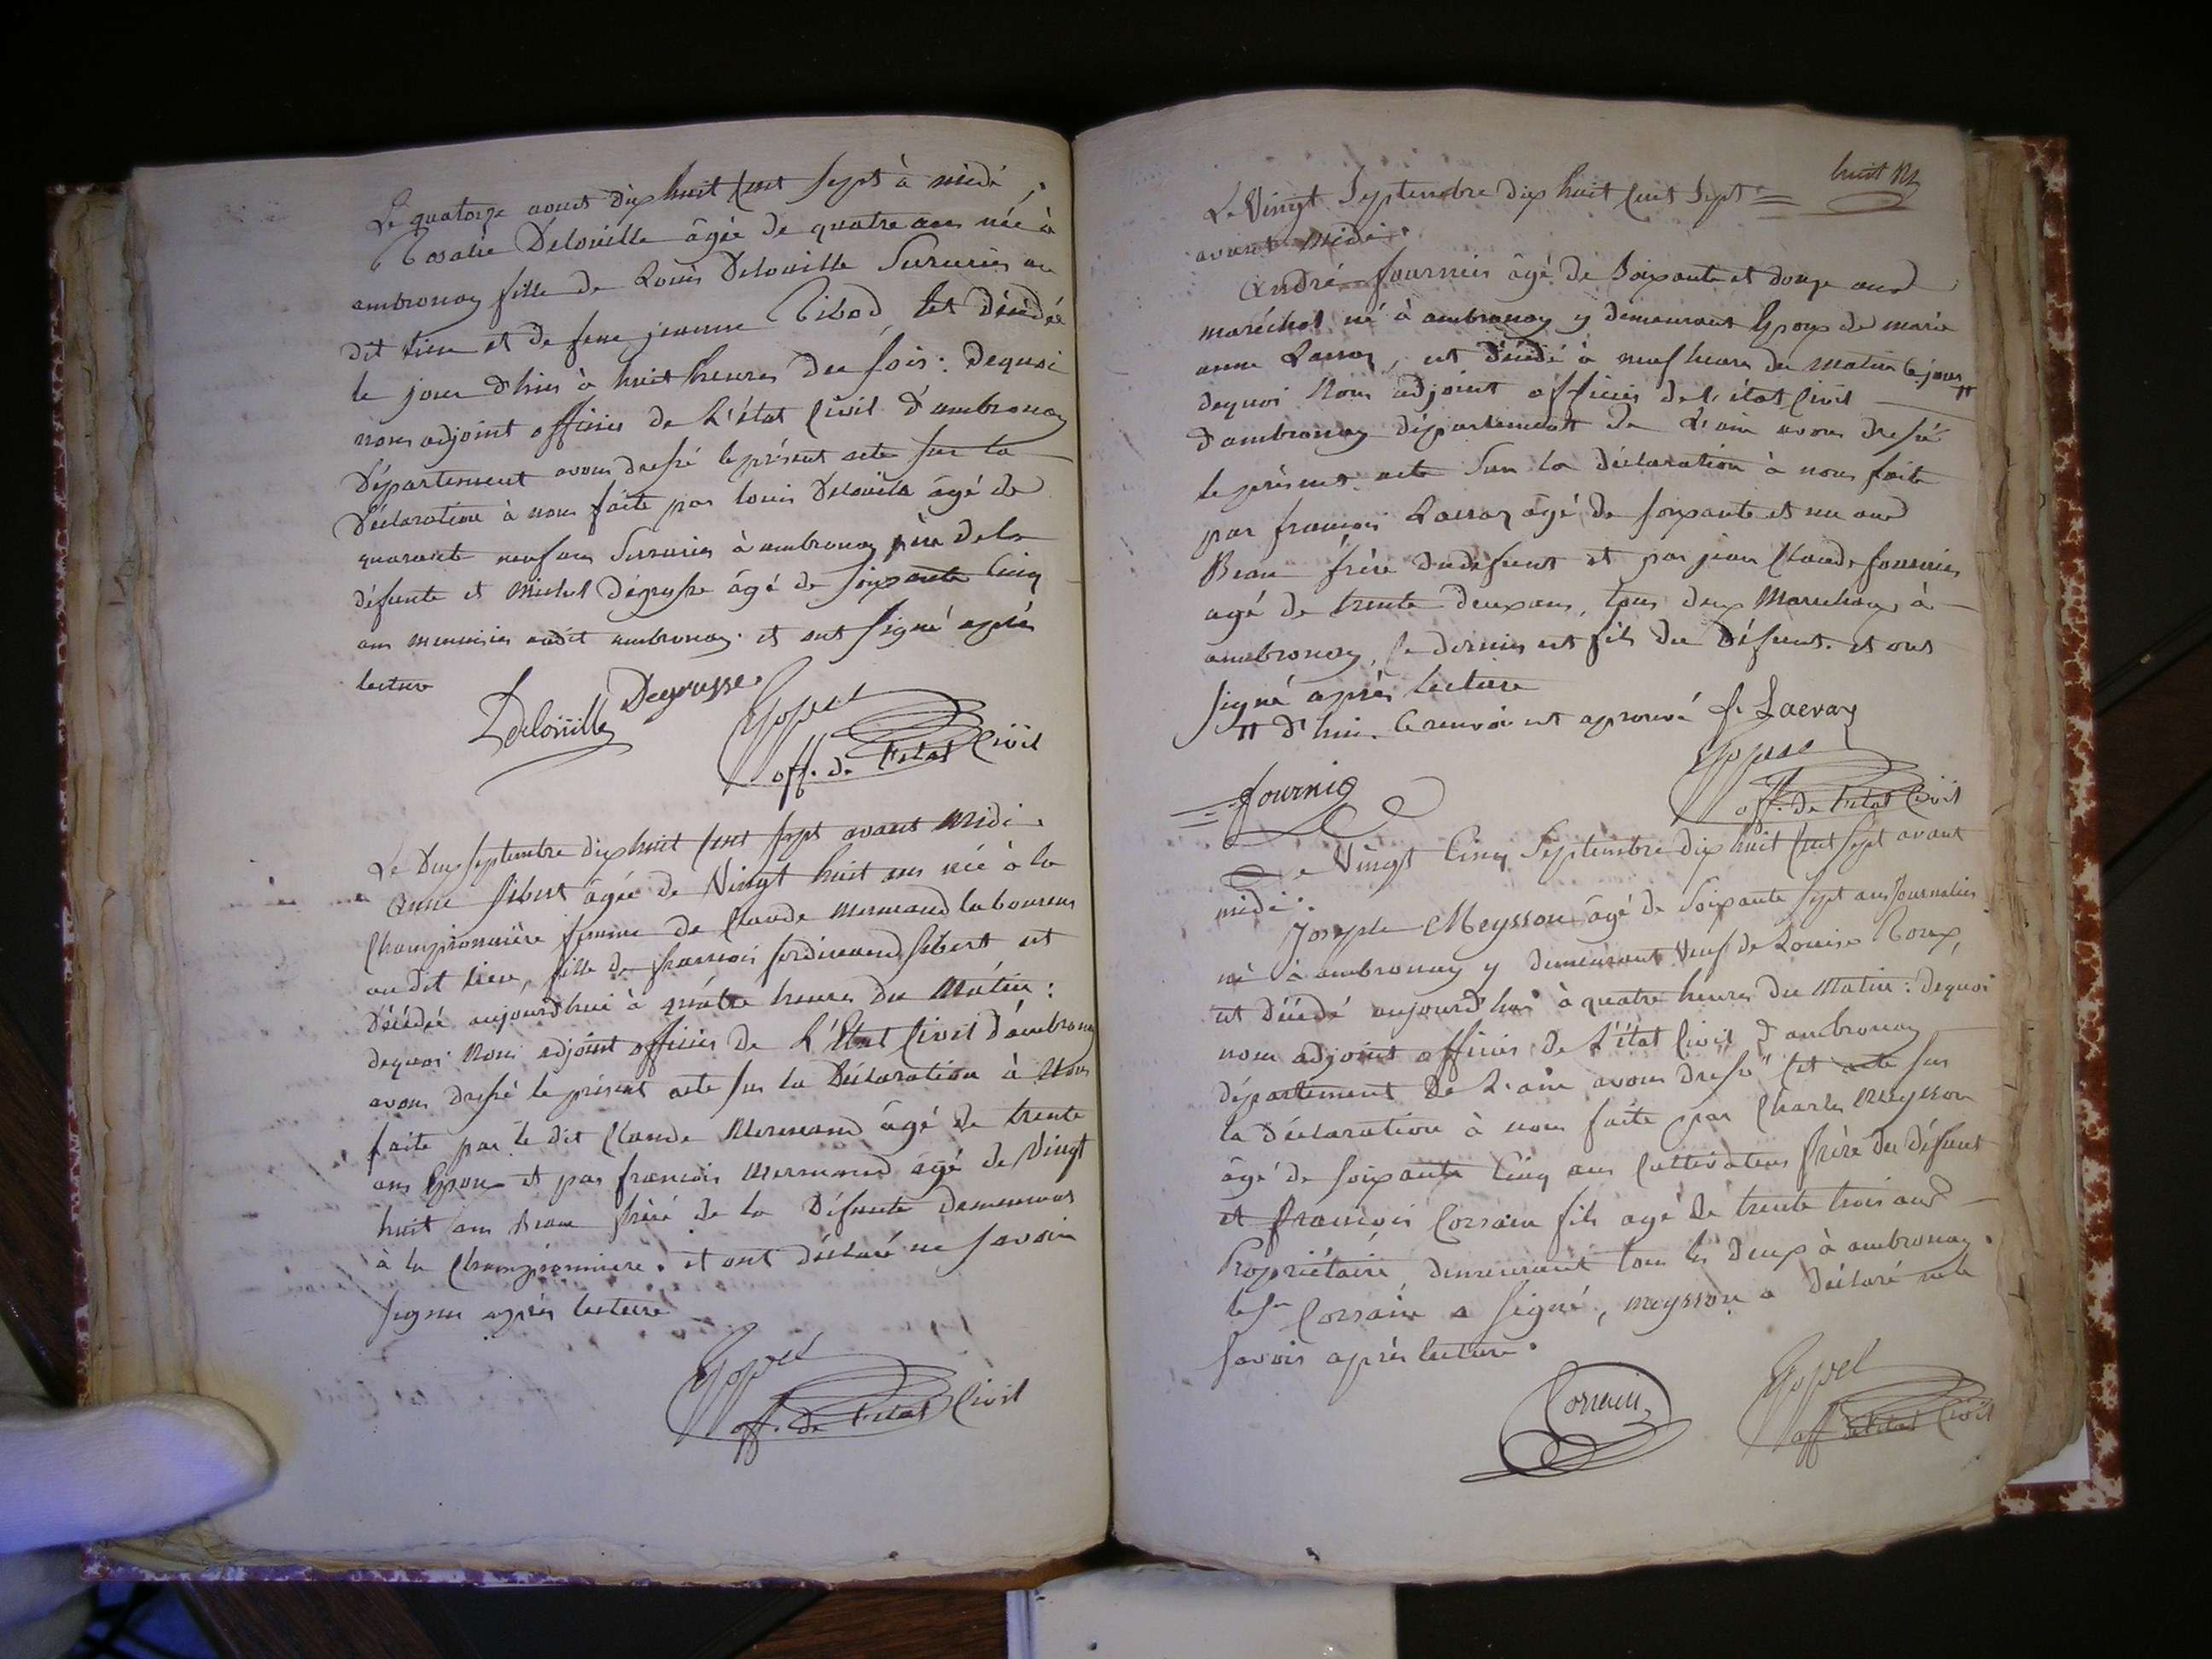 Le quatorze aoust dix huit cent sept à midi,
Rosalie Delouille âgée de quatre ans née à
ambronay fille de Louis Delouille Serrurier au
dit lieu et de feue jeanne Tibod est décédée
le jour d'hier à huit heures du soir: dequoi
nous adjoint officier de L'état Civil d'ambronay
Département avons dressé le présent acte sur la
Déclaration à nous faite par louis Delouille âgé de
quarante neuf ans Serrurier à ambronay père de la
défunte et Michel Dégrusse âgé de soixante Cinq
ans menuisier audit ambronay. et ont signé après
lecture
Delouille Degrusse
off. de l'état Civil
Le Deux septembre dix huit cent sept avant Midi.
Anne sibert âgée de Vingt huit ans née à la
Championnière femme de Claude Mermand laboureur
au dit lieu, fille de francois ferdinand sibert est
Décédée aujourd'hui à quatre heures du Matin:
dequoi Nous adjoint officier de L'État Civil d'ambronay
avons dressé le présent acte sur la Déclaration à Nous
faite par le dit Claude Mermand âgé de trente
ans Epoux et par francois Mermand âgé de Vingt
huit ans Beau frère de la Défunte demeurant
à la Championnière. et ont déclaré ne savoir
signer après lecture
off. de l'état Civil
huit
Le Vingt Septembre dix huit cent Sept
avant Midi.
André fournier âgé de Soixante et douze ans
maréchal né à ambronay y demeurant Epoux de marie
anne Lacroy, est décédé à neuf heures du matin ce jour
dequoi Nous adjoint officier de l'état Civil
d'ambronay département de L'ain avons dressé
le présent acte Sur la déclaration à nous faite
par francois Lacroy âgé de soixante et un ans
Beau frère du défunt et par jean Claude fournier
agé de trente deux ans, tous deux Maréchaux à
ambronay, le dernier est fils du Défunt. et ont
signé après lecture
# d'hui. le renvoi est aprouvé f. Lacroy
fournier
off. de l'état Civil
Le Vingt Cinq Septembre dix huit Cent Sept avant
midi.
Joseph Meysson âgé de Soixante Sept ans Journalier
né à ambronay y demeurant Veuf de Louise Roux,
est décédé aujourd'hui à quatre heures du Matin: dequoi
nous adjoint officier de L'état Civil d'ambronay
département De L'ain avons dressé cet acte sur
la déclaration à nous faite par Charles Meysson
âgé de soixante Cinq ans Cultivateur frère du défunt
et françois Corrain fils agé de trente trois ans
Propriétaire, demeurant tous les deux à ambronay.
le sr Corrain a signé, meysson a déclaré ne le
savoir après lecture.
Corrain
off de l'état Civil